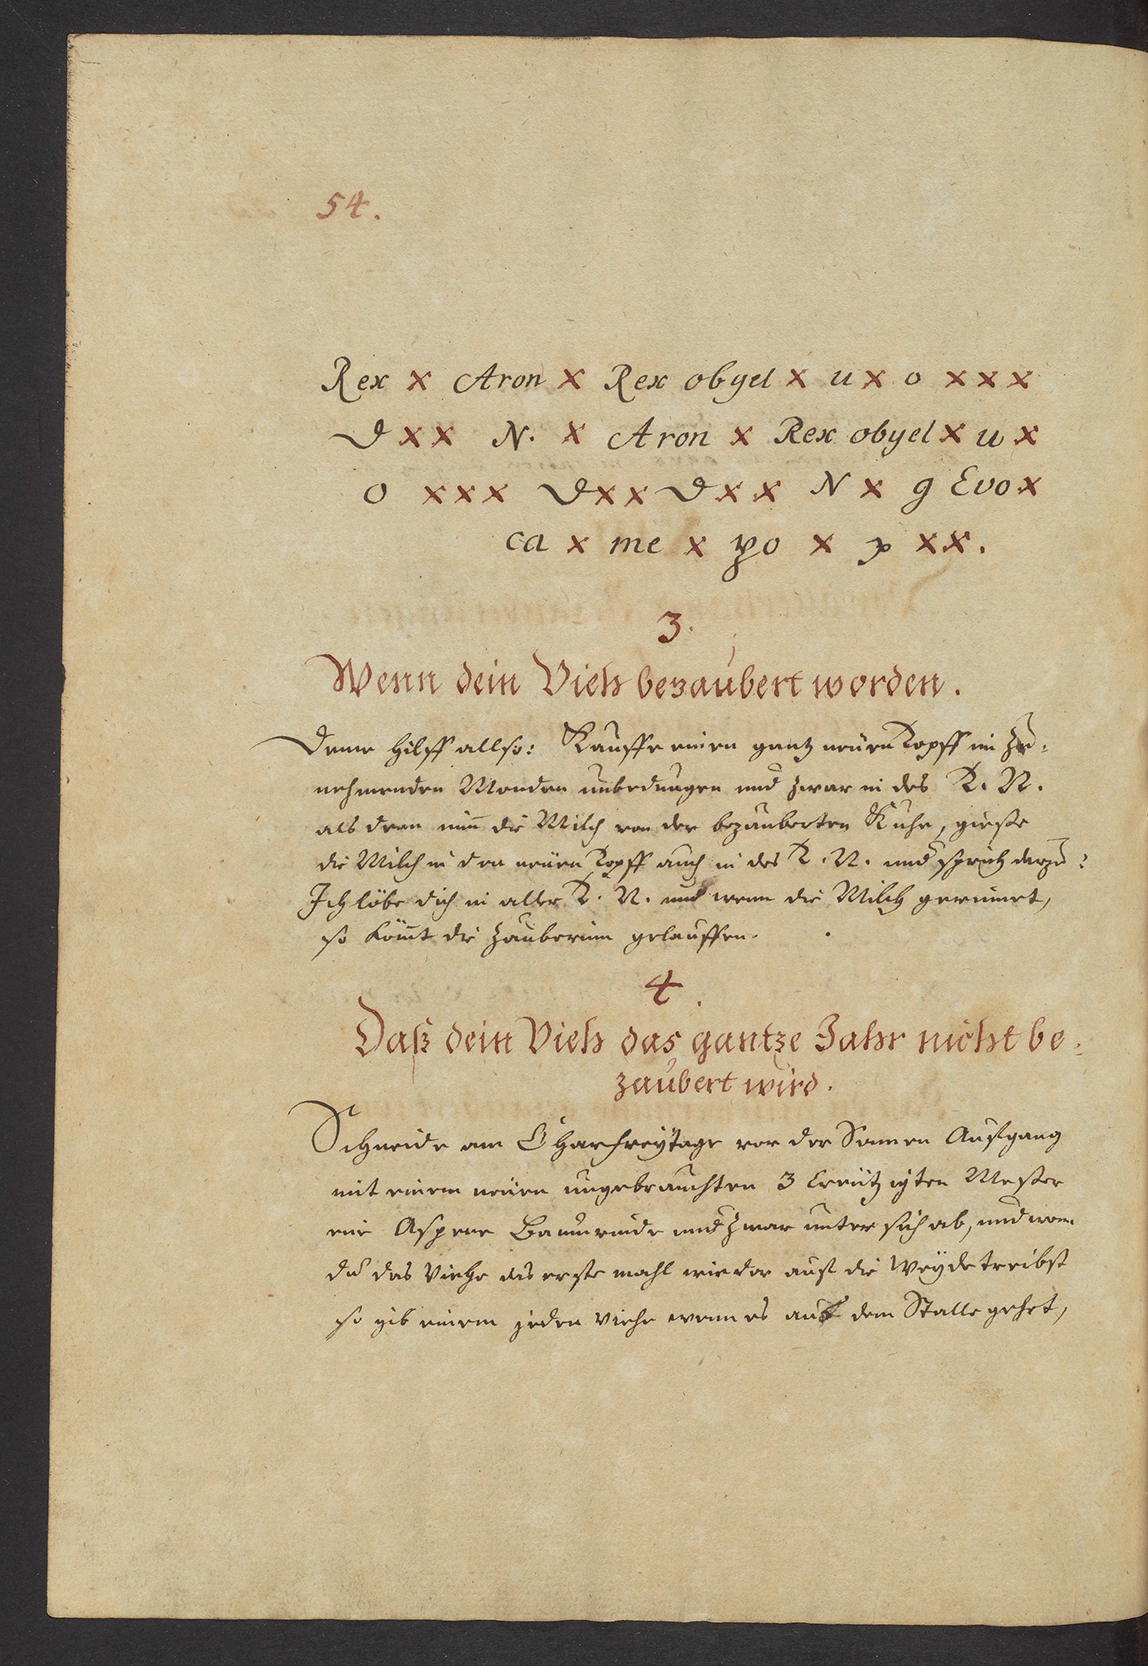 54.
Rex x Aron x Rex obyel x u x o x x x
D x x N. x Aron x Rex obyel x u x
o x x x D x x D x x N x g Evo x
ca x me x po x p x x.
3.
Wenn dein Vieh bezaubert worden.
Deme hilff allso: Kauffe einen gantz neüen Topff im Zu-
nehmenden Monden unbedungen und zwar in des T. N.
als denn nim̄ die Milch von der bezauberten Kuhe, gieße
die Milch in den neüen Topff auch in des T. N. und sprich darzu:
Ich löbe dich in aller T. N. und wenn die Milch gerinnet,
so kom̄t die Zauberinn gelauffen.
4.
Daß dein Vieh das gantze Jahr nicht be-
zaubert wird.
Schneide am Charfreÿtage vor der Sonnen Auffgang
mit einem neüen ungebrauchten 3 Creützigten Meßer
eine Aspene Baumrinde und zwar unter sich ab, und wenn
du das Viehe das erste mahl wieder auff die Weÿde treibst
so gib einem jeden Viehe wenn es auß dem Stalle gehet,